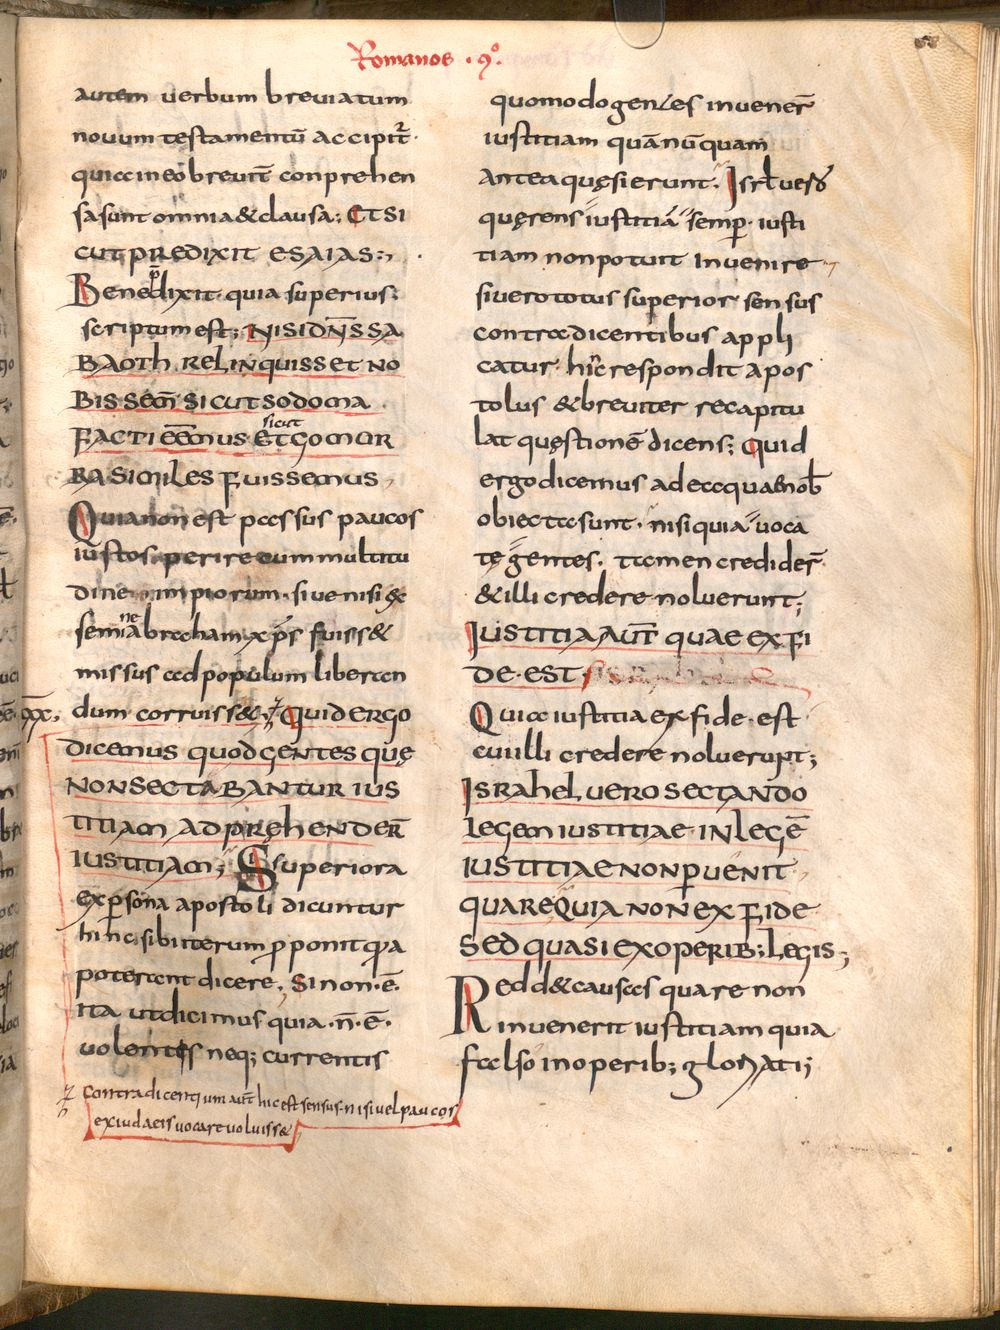 Romanos · 9º.
autem verbum breviatum
novum testamentū accipit̄·
quia in eo brevit̄ conprehen
sa sunt omnia & clausa; ET SI
CUT PREDIXIT ESAIAS;
Benedixit quia superius
scriptum est; NISI DN̄S SA
BAOTH RELINQUISSET NO
BIS SEM̄ SICUT SODOMA
sicut
FACTI EĒMUS ET GOMOR
RA SIMILES FUISSEMUS
Quia non est passus paucos
iustos perire cum multitu
dine impiorum· sive nisi de
ne
semi abraham xp̄s fuiss&
missus ad populum liberan
dum corruiss&; Quid ERGO
DICEMUS QUOD GENTES QUĘ
NON SECTABANTUR IUS
TITIAM ADPREHENDER̄
IUSTITIAM; Superiora
ex persona apostoli dicuntur
hinc sibi iterum proponit quia
poterant dicere, Si non·ē·
ita ut dicimus quia ·n̄·ē·
volentis neq; currentis
contradicentium aut̄ hic est sensus· nisi vel paucos
ex iudaeis vocare voluiss&
quomodo gentes invener̄
iustitiam quā nūquam
antea quęsierunt. Isrl̄ vero
quęrens iustitiā semp̄ iusti
tiam non potuit invenire
si vero totus superior sensus
contradicentibus appli
catur· hic respondit apos
tolus & breviter recapitu
lat quęstionē dicens; Quid
ergo dicemus ad ea quae nob̄
obiecta sunt· nisi quia voca
tę gentes· tamen credider̄
& illi credere noluerunt;
IUSTITIA AUT̄ QUAE EX FI
DE·EST
Quia iustitia ex fide· est
cui illi credere noluerunt;
ISRAHEL VERO SECTANDO
LEGEM IUSTITIAE· IN LEGĒ
IUSTITIAE NON PVENIT
QUARE QUIA NON EX FIDE
SED QUASI EX OPERIB; LEGIS;
Redd& causas quare non
invenerit iustitiam quia
falso in operib; gloriati;